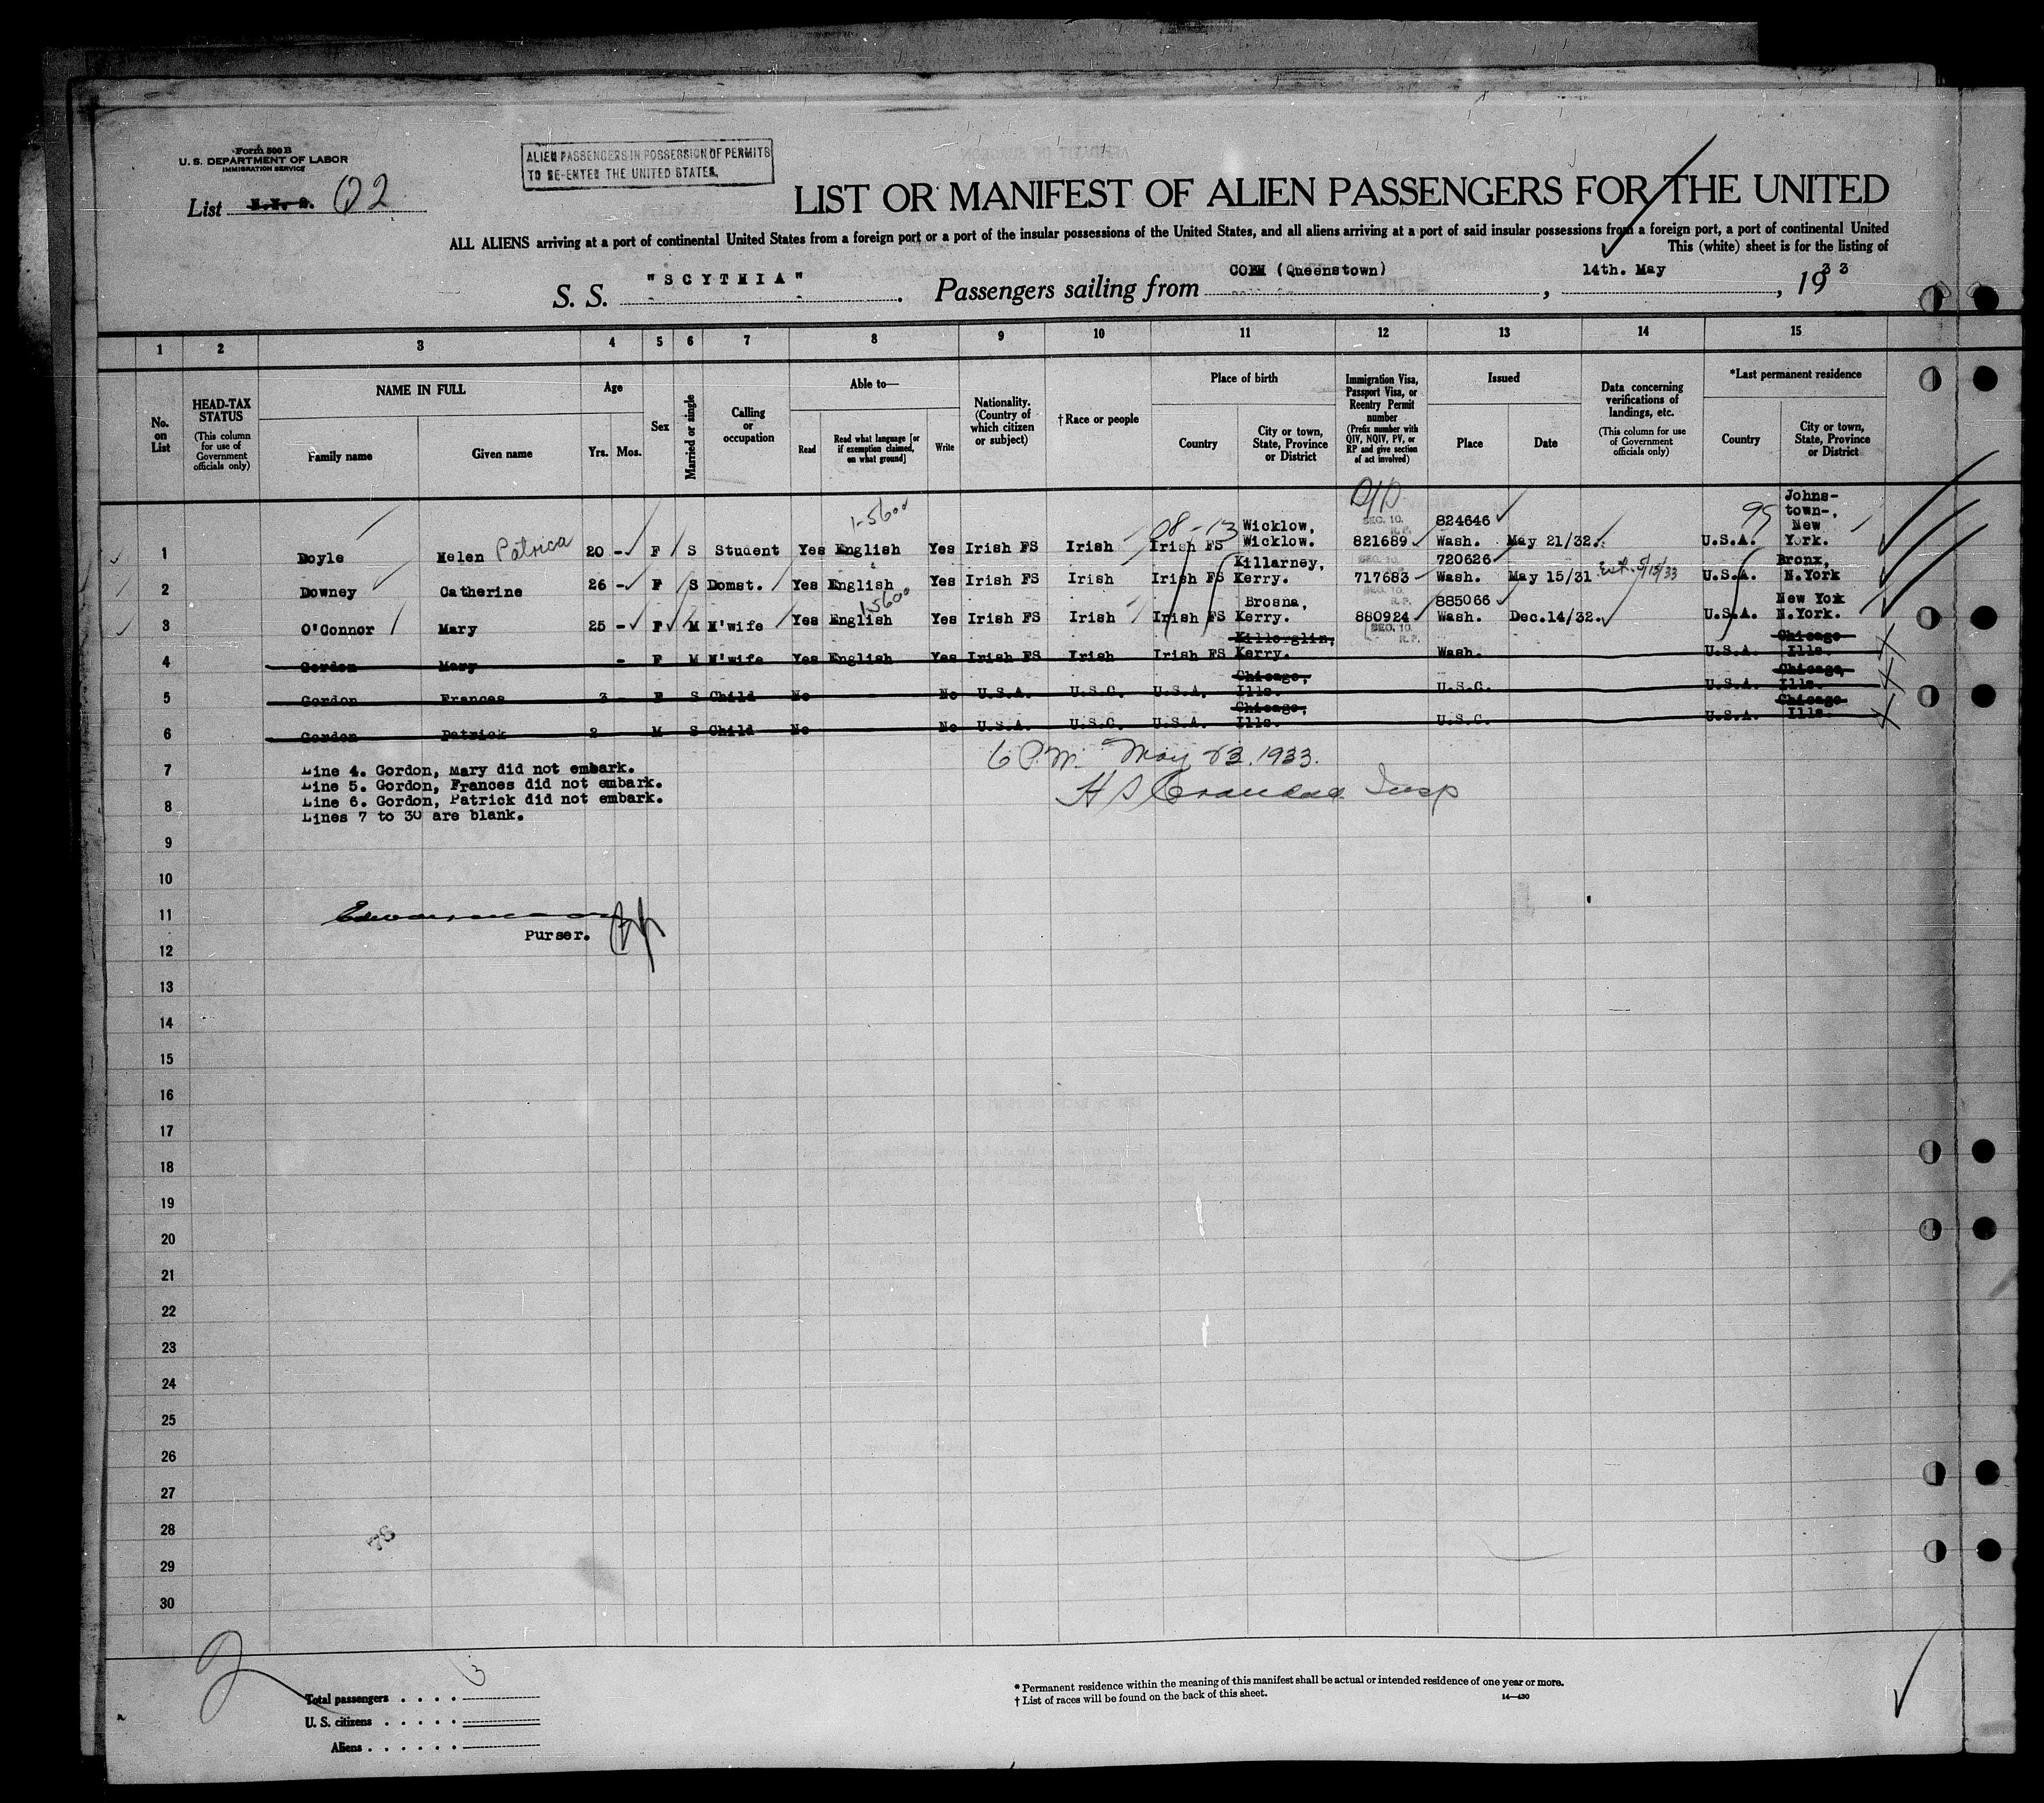 Form 500 B
U. S. DEPARTMENT OF LABOR
IMMIGRATION SERVICE
List 02
ALIEN PASSENGERS IN POSSESSION OF PERMITS
TO RE-ENTER THE UNITED STATES.
LIST OR MANIFEST OF ALIEN PASSENGERS FOR THE UNITED
ALL ALIENS arriving at a port of continental United States from a foreign port or a port of the insular possessions of the United States, and all aliens arriving at a port of said insular possessions from a foreign port, a port of continental United
This (white) sheet is for the listing of
S. S. "SCYTHIA". Passengers sailing from COBH (Queenstown), 14th. May, 1933
1 2 3 4 5 6 7 8 9 10 11 12 13 14 15
No. on List
HEAD-TAX STATUS
(This column for use of Government officials only)
NAME IN FULL
Family name
Given name
Age
Yrs. Mos.
Sex
Married or single
Calling or occupation
Able to—
Read
Read what language [or if exemption claimed, on what ground]
Write
Nationality. (Country of which citizen or subject)
†Race or people
Place of birth
Country
City or town, State, Province or District
Immigration Visa, Passport Visa, or Reentry Permit number
(Prefix number with QIV, NQIV, PV, or RP and give section of act involved)
Issued
Place
Date
Data concerning verifications of landings, etc.
(This column for use of Government officials only)
*Last permanent residence
Country
City or town, State, Province or District
1-5600
08-13
SEC. 10. R.P.
824646
99
1 Doyle Helen Patrica 20 - F S Student Yes English Yes Irish FS Irish Irish FS Wicklow, Wicklow. 821689 May 21/32. U.S.A. Johns-town-, New York.
SEC. 10.
720626
2 Downey Catherine 26 - F S Domst. Yes English Yes Irish FS Irish Irish FS Killarney, Kerry. 717683 Wash. May 15/31 Ext. 5/15/33 U.S.A. Bronx, N.York
1-5600
SEC. 10. R.P.
885066
3 O'Connor Mary 25 - F M H'wife Yes English Yes Irish FS Irish Irish FS Brosna, Kerry. 880924 Wash. Dec.14/32. U.S.A. New York N.York.
SEC. 10. R.P.
4 Gordon Mary - F M H'wife Yes English Yes Irish FS Irish Irish FS Killorglin, Kerry. Wash. U.S.A. Chicago Ills.
5 Gordon Frances 3 - F S Child No No U.S.A. U.S.C. U.S.A. Chicago, Ills. U.S.C. U.S.A. Chicago, Ills.
6 Gordon Patrick 2 M S Child No No U.S.A. U.S.C. U.S.A. Chicago, Ills. U.S.C. U.S.A. Chicago Ills.
6 P.M. May 23. 1933.
7 Line 4. Gordon, Mary did not embark.
Line 5. Gordon, Frances did not embark.
8 Line 6. Gordon, Patrick did not embark.
Lines 7 to 30 are blank.
Insp
9
10
11
Purser.
12
13
14
15
16
17
18
19
20
21
22
23
24
25
26
27
28
29
30
2
Total passengers . . . . 3
U. S. citizens . . . . .
Aliens . . . . . .
* Permanent residence within the meaning of this manifest shall be actual or intended residence of one year or more.
† List of races will be found on the back of this sheet.
14—430